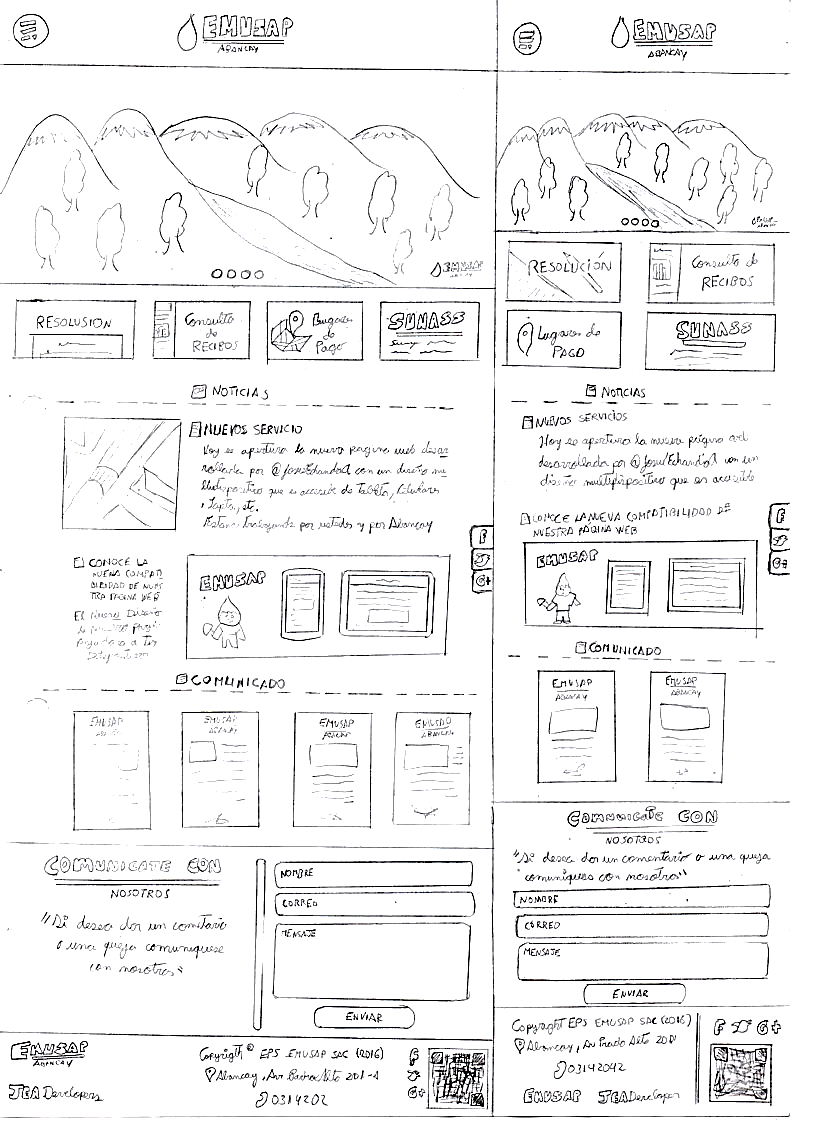 EMUSAP
ABANCAY
EMUSAP
ABANCAY
RESOLUSION
Consulta
de
RECIBOS
Lugares
de
Pago
SUNASS
NOTICIAS
NUEVO SERVICIO
Hoy se apertura la nueva pagina web desar
rollada por @JosueEchandoA con un diseño mu
ltidispositivo que es accesible de Tableta, Celulares
, Lapto, etc.
Estamos trabajando por ustedes y por Abancay
CONOCE LA
NUEVA COMPATI
BILIDAD DE NUES
TRA PAGINA WEB
EL Nuevo Diseño
EMUSAP
COMUNICADO
EMUSAP
ABANCAY
EMUSAP
ABANCAY
EMUSAP
ABANCAY
EMUSAP
ABANCAY
COMUNICATE CON
NOSOTROS
"Si desea dar un comentario
o una queja comuniquese
con nosotros"
NOMBRE
CORREO
MENSAJE
ENVIAR
EMUSAP
ABANCAY
JEA Developers
Copyrigth © EPS EMUSAP SAC (2016)
Abancay, Av. Alto 201-A
0314202
f
G+
EMUSAP
ABANCAY
RESOLUCIÓN
Consulta de
RECIBOS
Lugares de
PAGO
SUNASS
NOTICIAS
NUEVOS SERVICIOS
Hoy se apertura la nueva página
desarrollada por @JosueEchandoA con un
diseño multidispositivo que es accesible
CONOCE LA NUEVA COMPATIBILIDAD DE
NUESTRA PÁGINA WEB
EMUSAP
f
G+
COMUNICADO
EMUSAP
ABANCAY
EMUSAP
ABANCAY
COMUNICATE CON
NOSOTROS
"Si desea dar un comentario o una queja
comuniquese con nosotros"
NOMBRE
CORREO
MENSAJE
ENVIAR
Copyright EPS EMUSAP SAC (2016)
Abancay, Av Prado Alto 201
03142042
EMUSAP JEA Developer
f G+